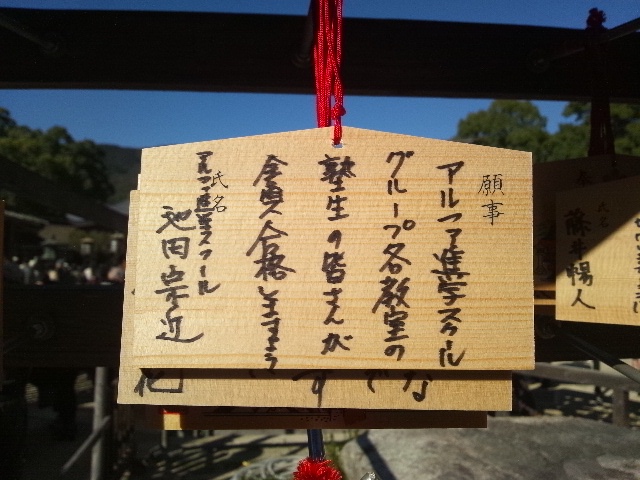 願事
アルファ進学スクール
グループ各教室の
塾生の皆さんが
全員合格しますよう
氏名
アルファ進学スクール
池田宗近
氏名
藤井暢人